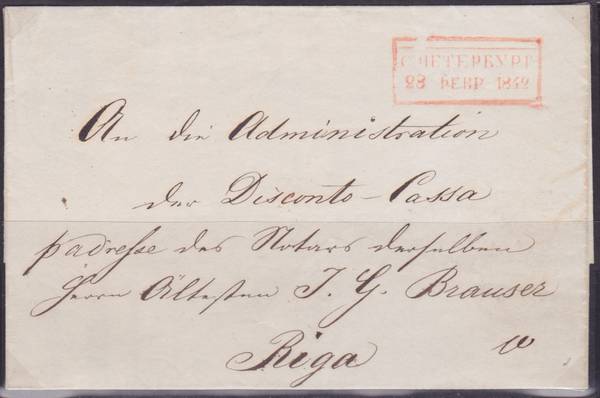 С.ПЕТЕРБУРГ
28 ФЕВР. 1842
An die Administration
der Disconto-Cassa
p adresse des Notars derselben
Herrn Ältesten J. G. Brauser
Riga